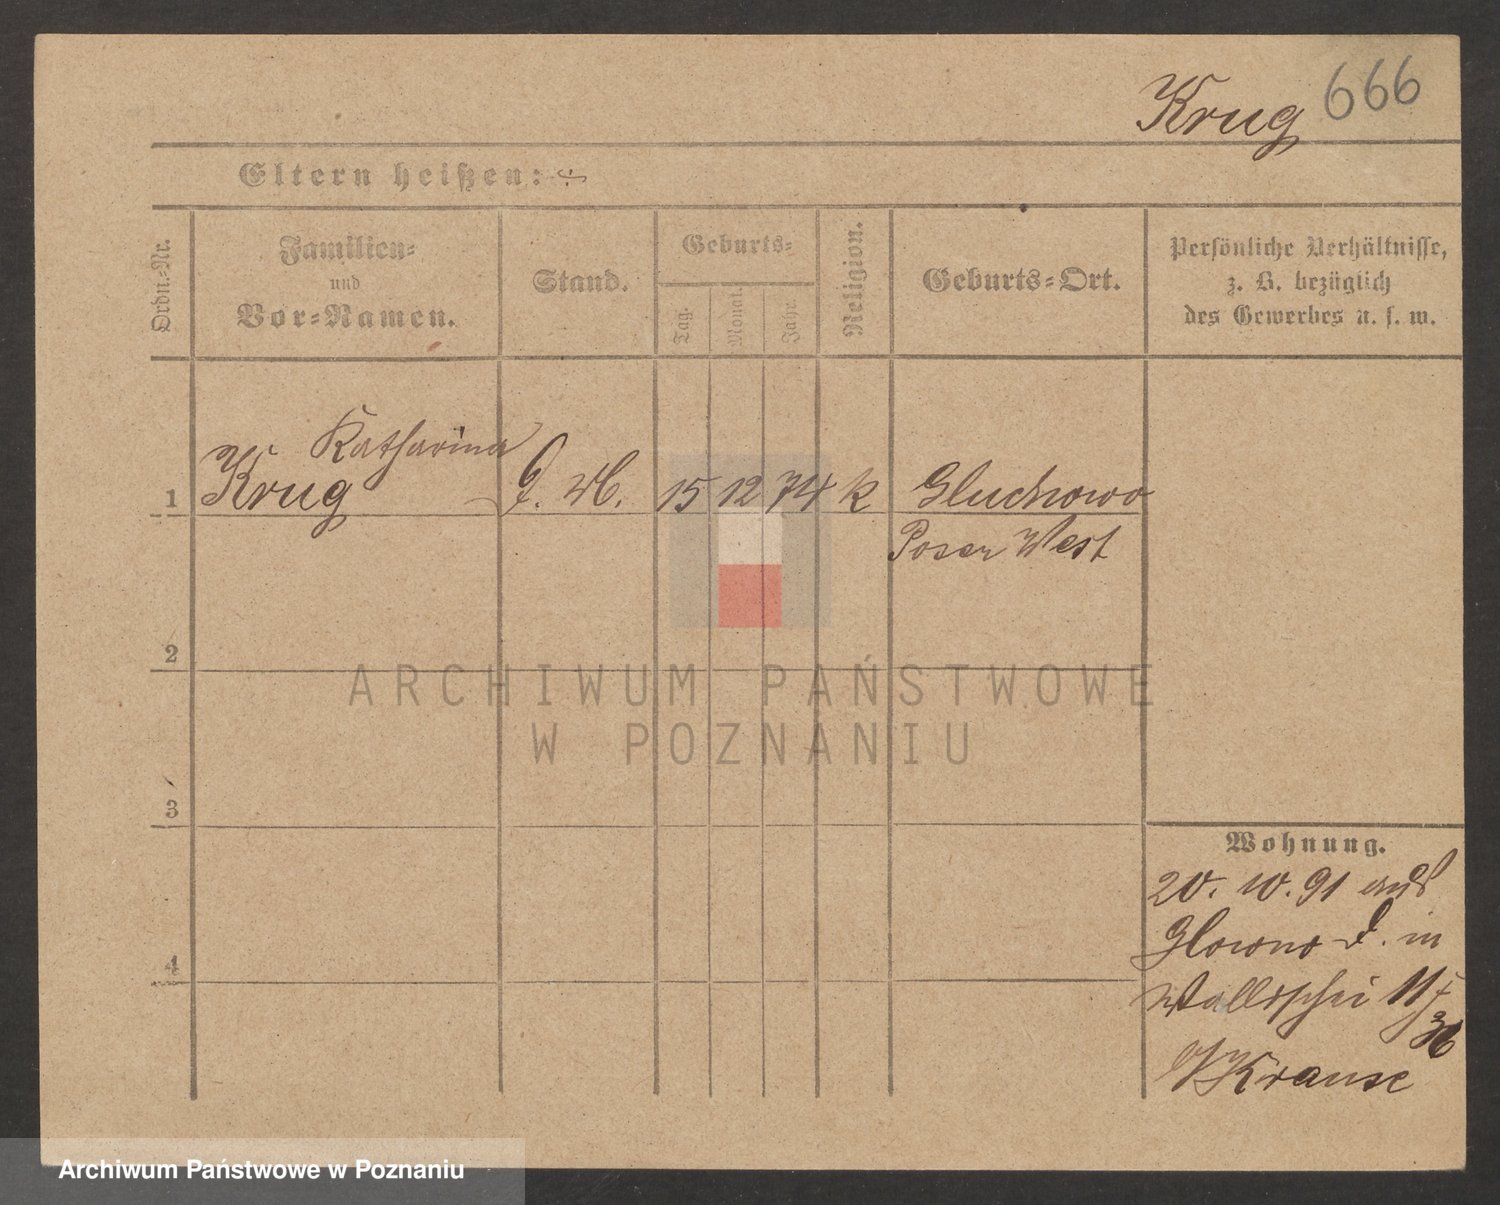 Krug 666
Eltern heißen:
Ordn.-Nr.
Familien-
und
Vor-Namen.
Stand.
Geburts-
Tag.
Monat.
Jahr.
Religion.
Geburts-Ort.
Persönliche Verhältnisse,
z. B. bezüglich
des Gewerbes u. s. w.
Katharina
1 Krug 15 12 74 k Gluchowo
Posen West
2
3
4
Wohnung.
20. 10. 91 aus
Glowno in
Wallischei 11/
36
Krause
ARCHIWUM PAŃSTWOWE
W POZNANIU
Archiwum Państwowe w Poznaniu